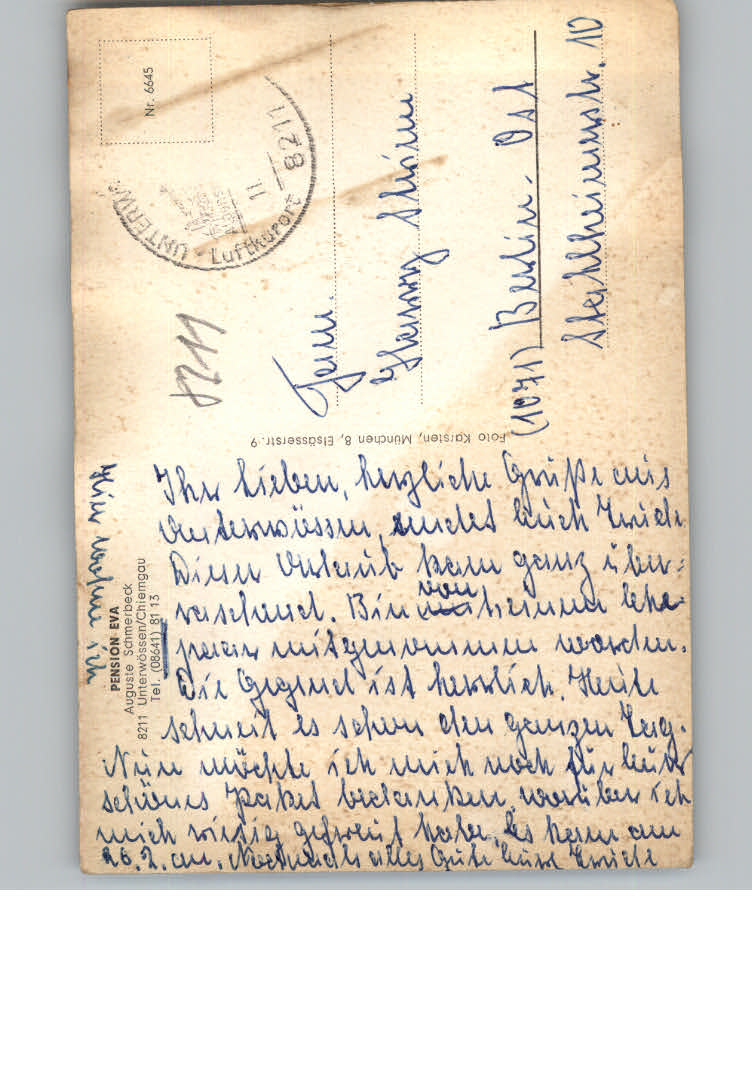 Hier wohne ich
PENSION EVA
Auguste Schmerbeck
8211 Unterwössen/Chiemgau
Tel. (08641) 81 13
Ihr Lieben, herzliche Grüße aus
Unterwössen, sendet Euch
Dieser Urlaub kam ganz über-
raschend. Bin von einem Ehe-
paar mitgenommen worden.
Die Gegend ist herrlich. Heute
schneit es schon den ganzen Tag.
Nun möchte ich mich noch für Euer
schönes Paket bedanken, worüber ich
mich riesig gefreut habe. Es kam am
26.2. an. Nochmals alles Gute Eure
Foto Karsten, München 8, Elsässerstr. 9
Nr. 6645
UNTERW
Luftkurort
11
8211
8211
Fam.
(1071) Berlin-Ost
10